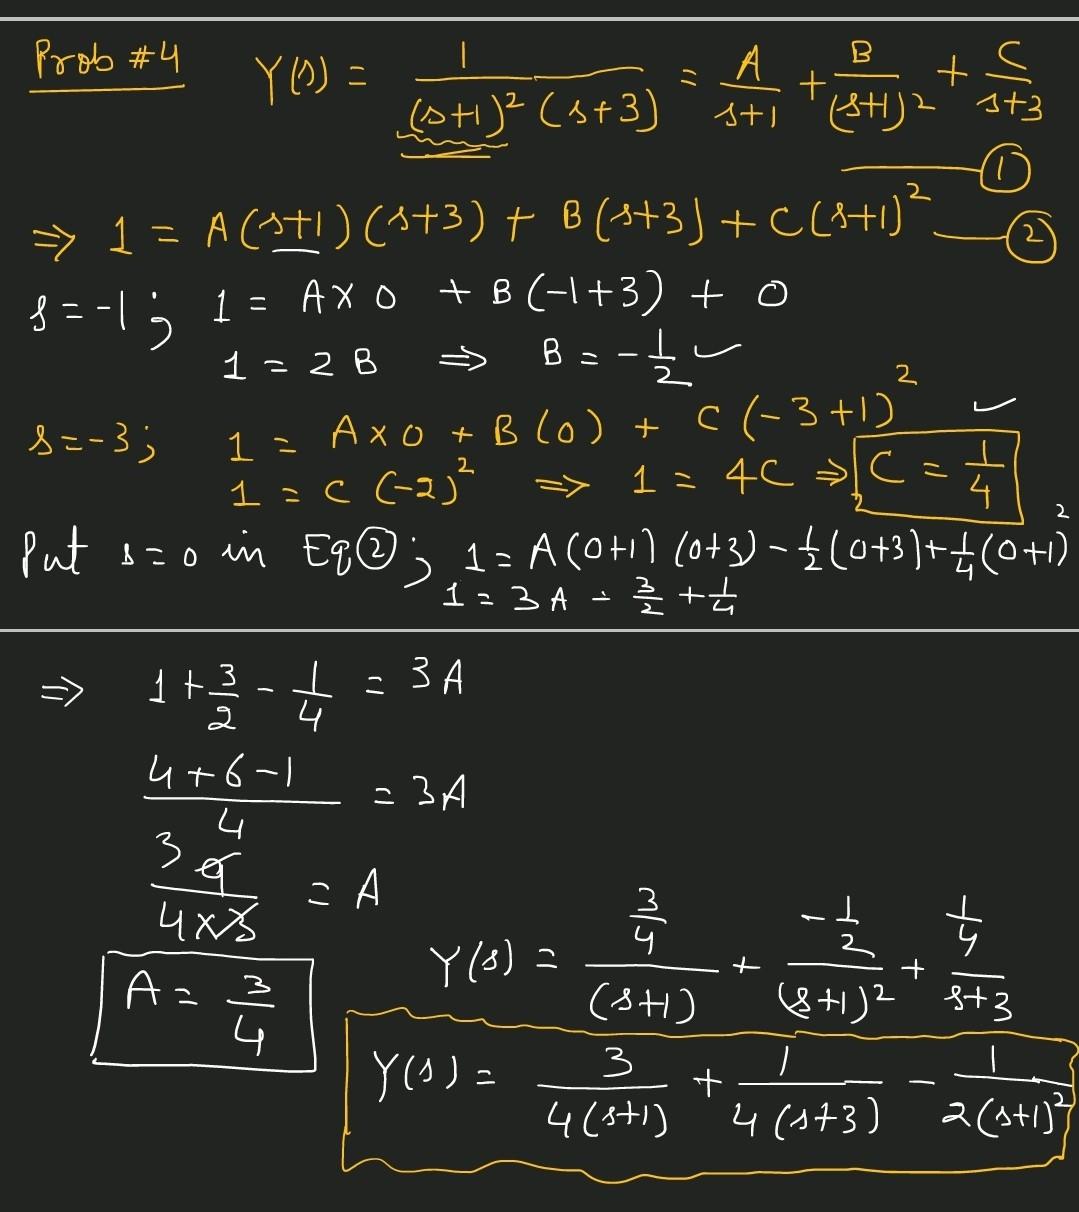 Prob #4 Y(s) = 1/((s+1)² (s+3)) = A/(s+1) + B/(s+1)² + C/(s+3)
①
⇒ 1 = A(s+1)(s+3) + B(s+3) + C(s+1)² ②
s = -1; 1 = A×0 + B(-1+3) + 0
1 = 2B ⇒ B = -1/2 ✓
s = -3; 1 = A×0 + B(0) + C(-3+1)² ✓
1 = C(-2)² ⇒ 1 = 4C ⇒ C = 1/4
Put s=0 in Eq②; 1 = A(0+1)(0+3) - 1/2(0+3) + 1/4(0+1)²
1 = 3A - 3/2 + 1/4
⇒ 1 + 3/2 - 1/4 = 3A
(4+6-1)/4 = 3A
3 9/(4×3) = A
A = 3/4
Y(s) = (3/4)/(s+1) + (-1/2)/(s+1)² + (1/4)/(s+3)
Y(s) = 3/(4(s+1)) + 1/(4(s+3)) - 1/(2(s+1)²)